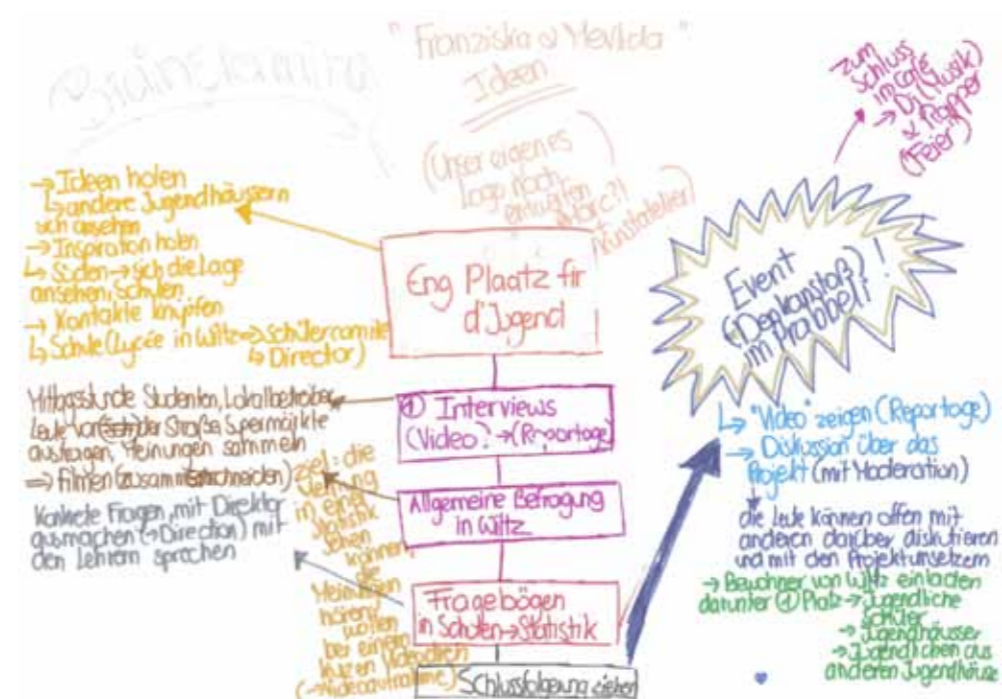 Brainstorming
"Franziska & Mevlida"
Ideen
(Unser eigenes
Logo noch
entwerfen
Marc?!
Kunstatelier)
zum
Schluss
im Café
→ DJ (Musik)
& Rapper
(Feier)
→ Ideen holen
↳ andere Jugendhäusern
sich ansehen
→ Inspiration holen
↳ Süden → sich die Lage
ansehen, Schulen
→ Kontakte knüpfen
↳ Schule (Lycée in Wiltz → Schülercomité
↳ Director)
Eng Plaatz fir
d'Jugend
Event
(→ Denkanstoß)!
im Prabbeli
① Interviews
(Video? → (Reportage)
Mittagsstunde Studenten, Lokalbetreiber
Leute vor der Straße Supermärkte
ausfragen, Meinungen sammeln
⇒ Filmen (zusammenschneiden)
Allgemeine Befragung
in Wiltz
ziel: die
Meinung
in einer
Statistik
sehen
können,
Meinungen
hören,
wollen
bei einem
kurzen Videodreh
(→ Videoaufnahme)
Konkrete Fragen, mit Direktor
ausmachen (→ Direction) mit
den Lehrern sprechen
Fragebögen
in Schulen → Statistik
Schlussfolgerung ziehen
↳ "Video" zeigen (Reportage)
→ Diskussion über das
Projekt (mit Moderation)
die Leute können offen mit
anderen darüber diskutieren
und mit den Projektumsetzern
→ Bewohner von Wiltz einladen
darunter ① Platz → Jugendliche
Schüler
→ Jugendhäuser
→ Jugendlichen aus
anderen Jugendhäuse